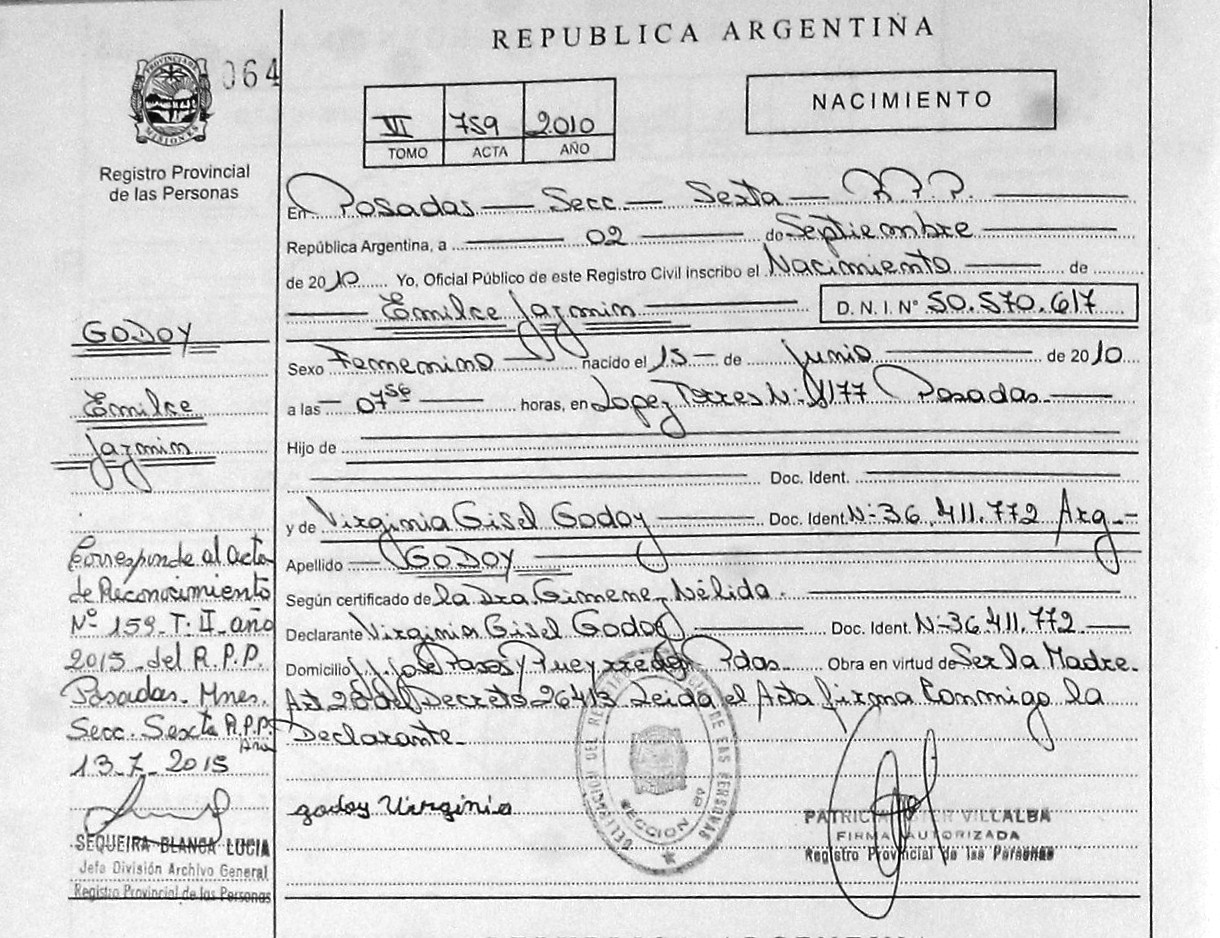 REPUBLICA ARGENTINA
064
PROVINCIA DE MISIONES
Registro Provincial
de las Personas
VI 759 2010
TOMO ACTA AÑO
NACIMIENTO
En Posadas Secc Sexta R.P.P.
República Argentina, a 02 de Septiembre
de 2010 Yo, Oficial Público de este Registro Civil inscribo el Nacimiento de
Emilce Jazmin D. N. I. N° 50.570.617
Sexo Femenino nacido el 15 de Junio de 2010
a las 07 56 horas, en Lopez Torres N- 1177 Posadas
Hijo de
Doc. Ident.
y de Virginia Gisel Godoy Doc. Ident. N-36.411.772 Arg.-
Apellido GODOY
Según certificado de la Dra Gimene Nélida.
Declarante Virginia Gisel Godoy Doc. Ident. N-36.411.772
Domicilio Jose Pasos y Pueyrredon Pdas. Obra en virtud de Ser la Madre.
Art 20 del Decreto 26413 Leida el Acta firma Conmigo la
Declarante.
godoy Virginia
DELEGACION DEL REGISTRO PROVINCIAL DE LAS PERSONAS
SECCION 6ª
PATRICIA ESTER VILLALBA
FIRMA AUTORIZADA
Registro Provincial de las Personas
GODOY
Emilce
Jazmin
Corresponde al acta
de Reconocimiento
N° 159-T-II-año
2015 del R.P.P.
Posadas. Mnes.
Secc. Sexta R.P.P.
13-7-2015
SEQUEIRA BLANCA LUCIA
Jefa División Archivo General
Registro Provincial de las Personas